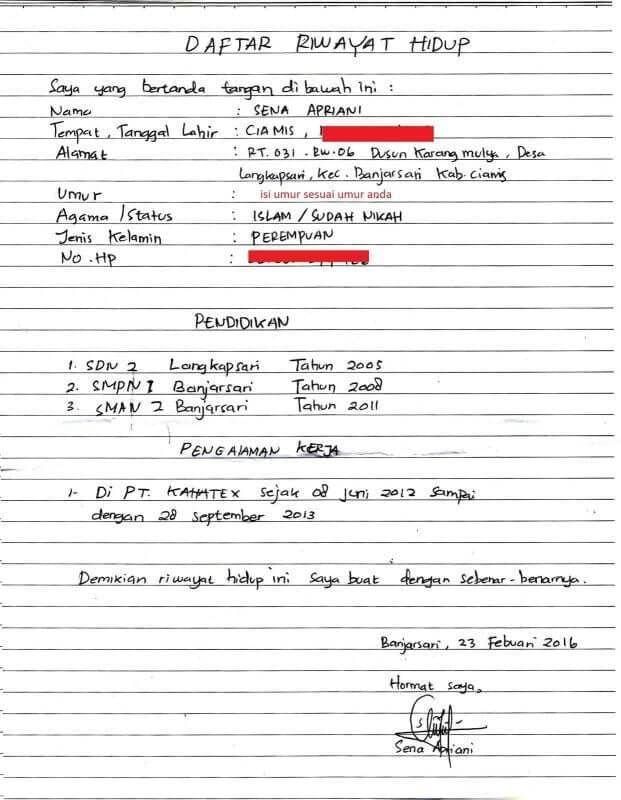 DAFTAR RIWAYAT HIDUP
Saya yang bertanda tangan di bawah ini :
Nama : SENA APRIANI
Tempat, Tanggal Lahir : CIAMIS ,
Alamat : RT. 031 . RW. 06 Dusun Karang mulya, Desa
Langkapsari, Kec. Banjarsari Kab. Ciamis
Umur : isi umur sesuai umur anda
Agama / Status : ISLAM / SUDAH NIKAH
Jenis Kelamin : PEREMPUAN
No. Hp :
PENDIDIKAN
1. SDN 2 Langkapsari Tahun 2005
2. SMPN 1 Banjarsari Tahun 2008
3. SMAN 2 Banjarsari Tahun 2011
PENGALAMAN KERJA
1- Di PT. KAHATEX sejak 08 Juni 2012 Sampai
dengan 28 september 2013
Demikian riwayat hidup ini saya buat dengan sebenar-benarnya.
Banjarsari, 23 Febuari 2016
Hormat saya,
Sena Apriani